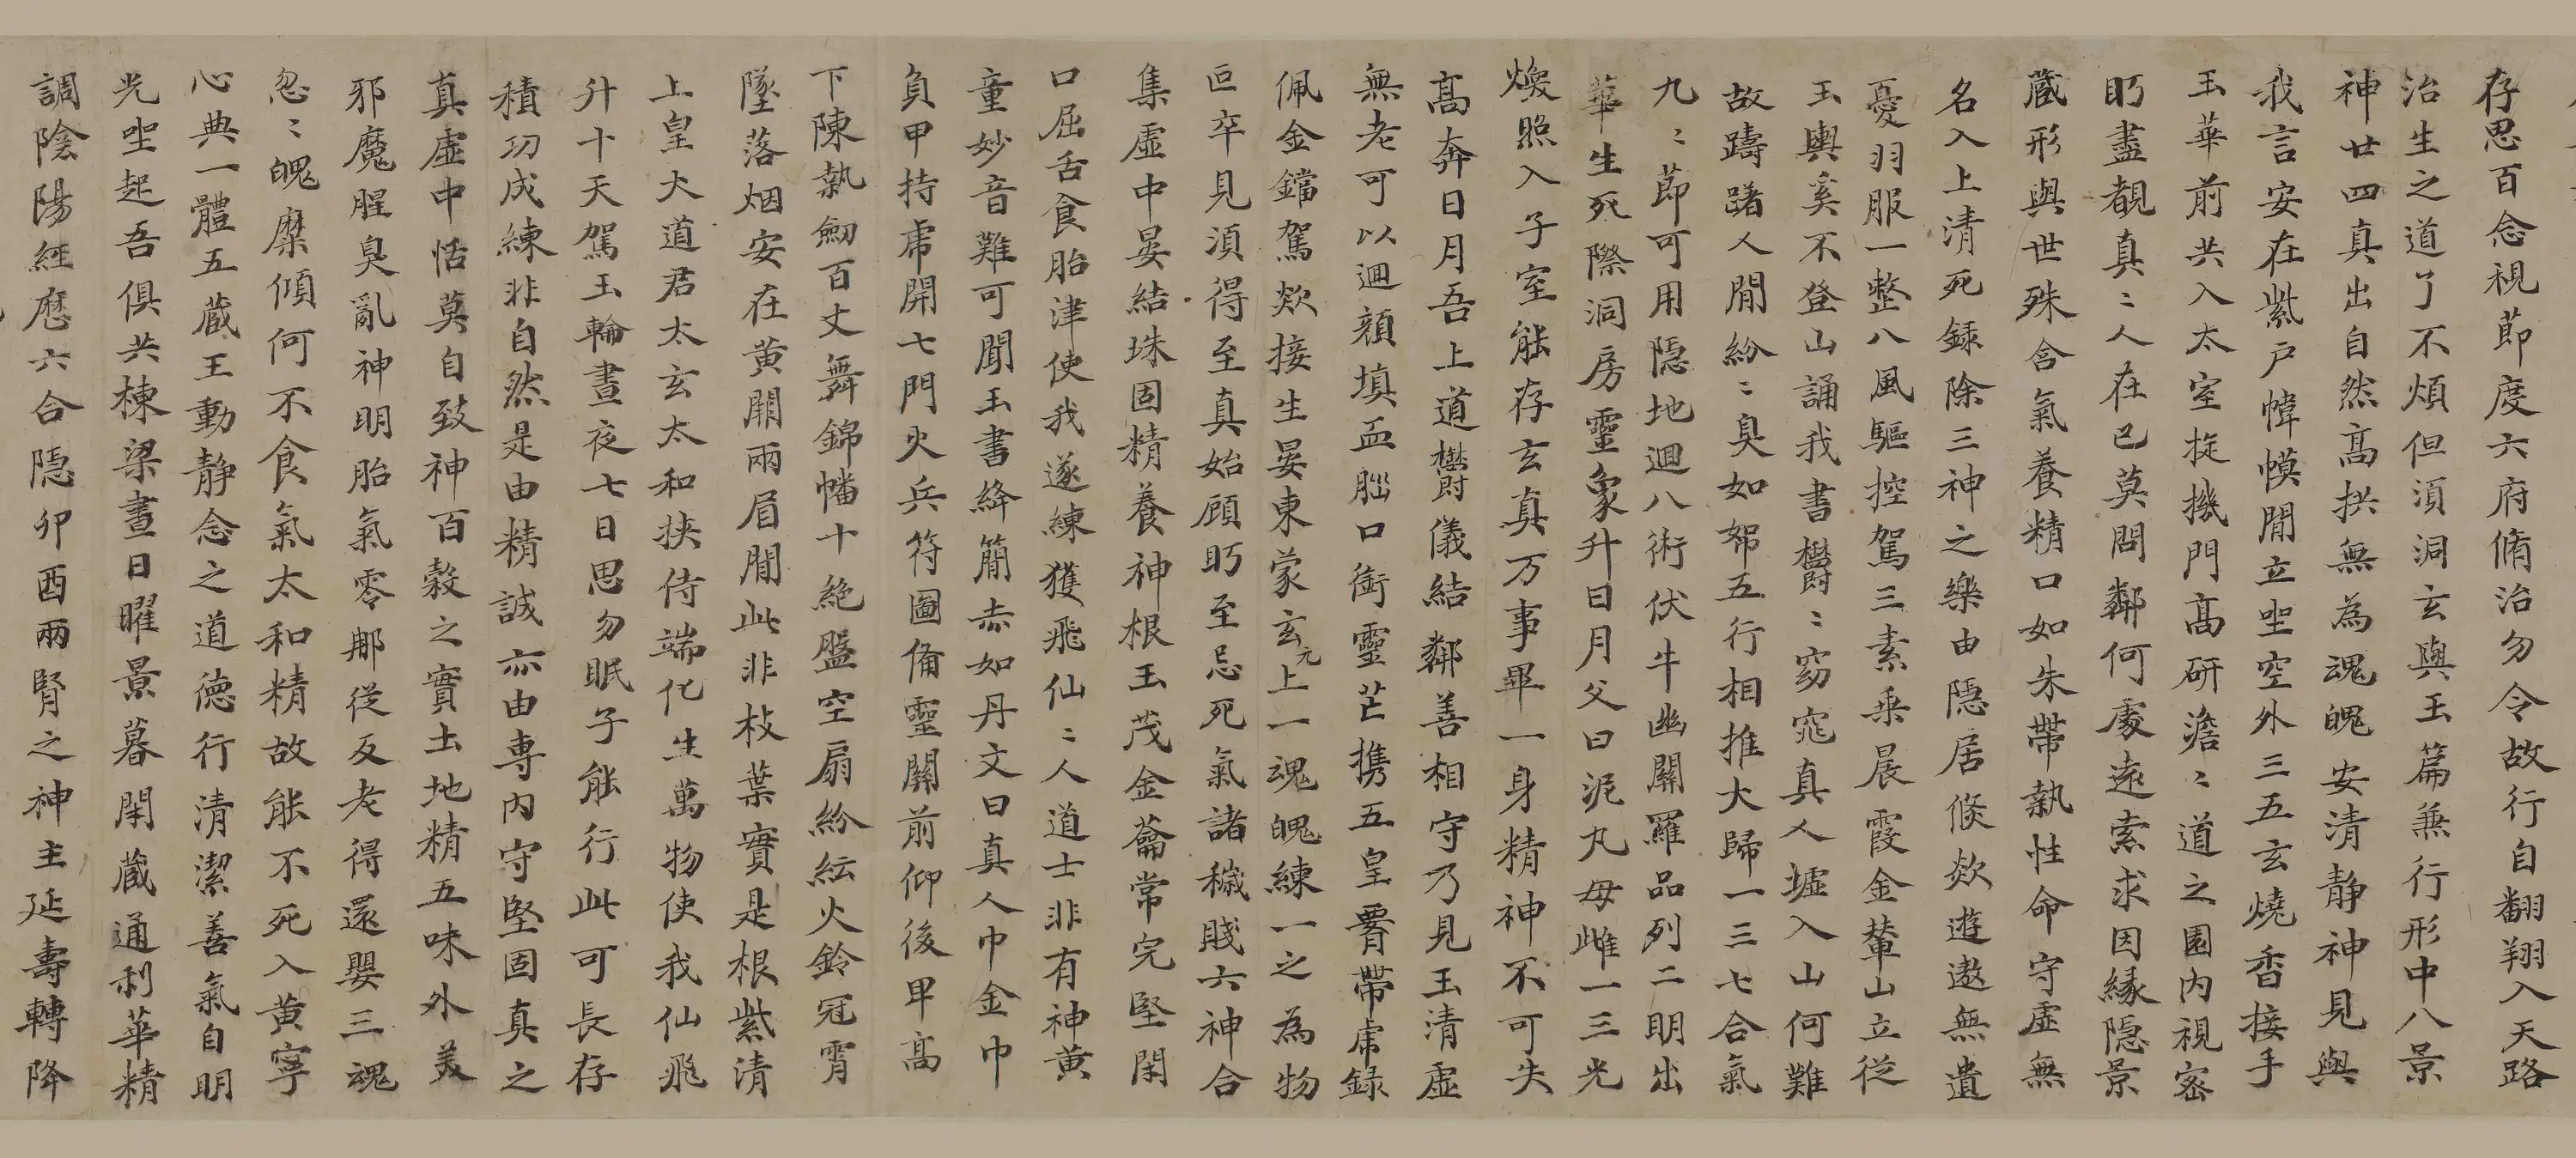 存思百念視節度六府脩治勿令故行自翻翔入天路
治生之道了不煩但湏洞玄與玉篇兼行形中八景
神廿四真出自然高拱無為魂魄安清静神見與
我言安在紫戶幃幙閒立坐空外三五玄燒香接手
玉華前共入太室琁機門高研澹〻道之園內視密
盼盡覩真〻人在己莫問鄰何處遠索求因緣隠景
蔵形與世殊含氣養精口如朱帶執性命守虛無
名入上清死録除三神之樂由隠居倐欻遊遨無遺
憂羽服一整八風驅控駕三素乗晨霞金輦山立從
玉輿奚不登山誦我書欝〻窈窕真人墟入山何難
故躊躇人閒紛〻臭如帤五行相推大歸一三七合氣
九〻莭可用隠地迴八術伏牛幽關羅品列二明出
華生死際洞房靈象升日月父曰泥丸母雌一三光
煥照入子室能存玄真万事畢一身精神不可失
高奔日月吾上道欝儀結鄰善相守乃見玉清虛
無老可以迴顔填血腦口銜靈芒携五皇腎帶虎録
佩金鐺駕欻接生晏東蒙玄元上一魂魄練一之為物
叵卒見湏得至真始顧盼至忌死氣諸穢賤六神合
集虛中晏結珠固精養神根玉茂金籥常完堅閇
口屈舌食胎津使我遂練獲飛仙〻人道士非有神黄
童妙音難可聞玉書絳簡赤如丹文曰真人巾金巾
負甲持虎開七門火兵符圖備靈關前仰後卑高
下陳執劒百丈舞錦幡十絶盤空扇紛紜火鈴冠霄
墜落烟安在黄闕兩眉閒此非枝葉實是根紫清
上皇大道君太玄太和挾侍端化生萬物使我仙飛
升十天駕玉輪晝夜七日思勿眠子能行此可長存
積功成練非自然是由精誠亦由専內守堅固真之
真虛中恬莫自致神百穀之實土地精五味外美
邪魔腥臭亂神明胎氣零那從反老得還嬰三魂
忽〻魄糜傾何不食氣太和精故能不死入黄寧
心典一體五蔵王動静念之道徳行清潔善氣自明
光坐起吾俱共棟梁晝日曜景暮閇蔵通利華精
調陰陽經歷六合隠卯酉兩腎之神主延壽轉降